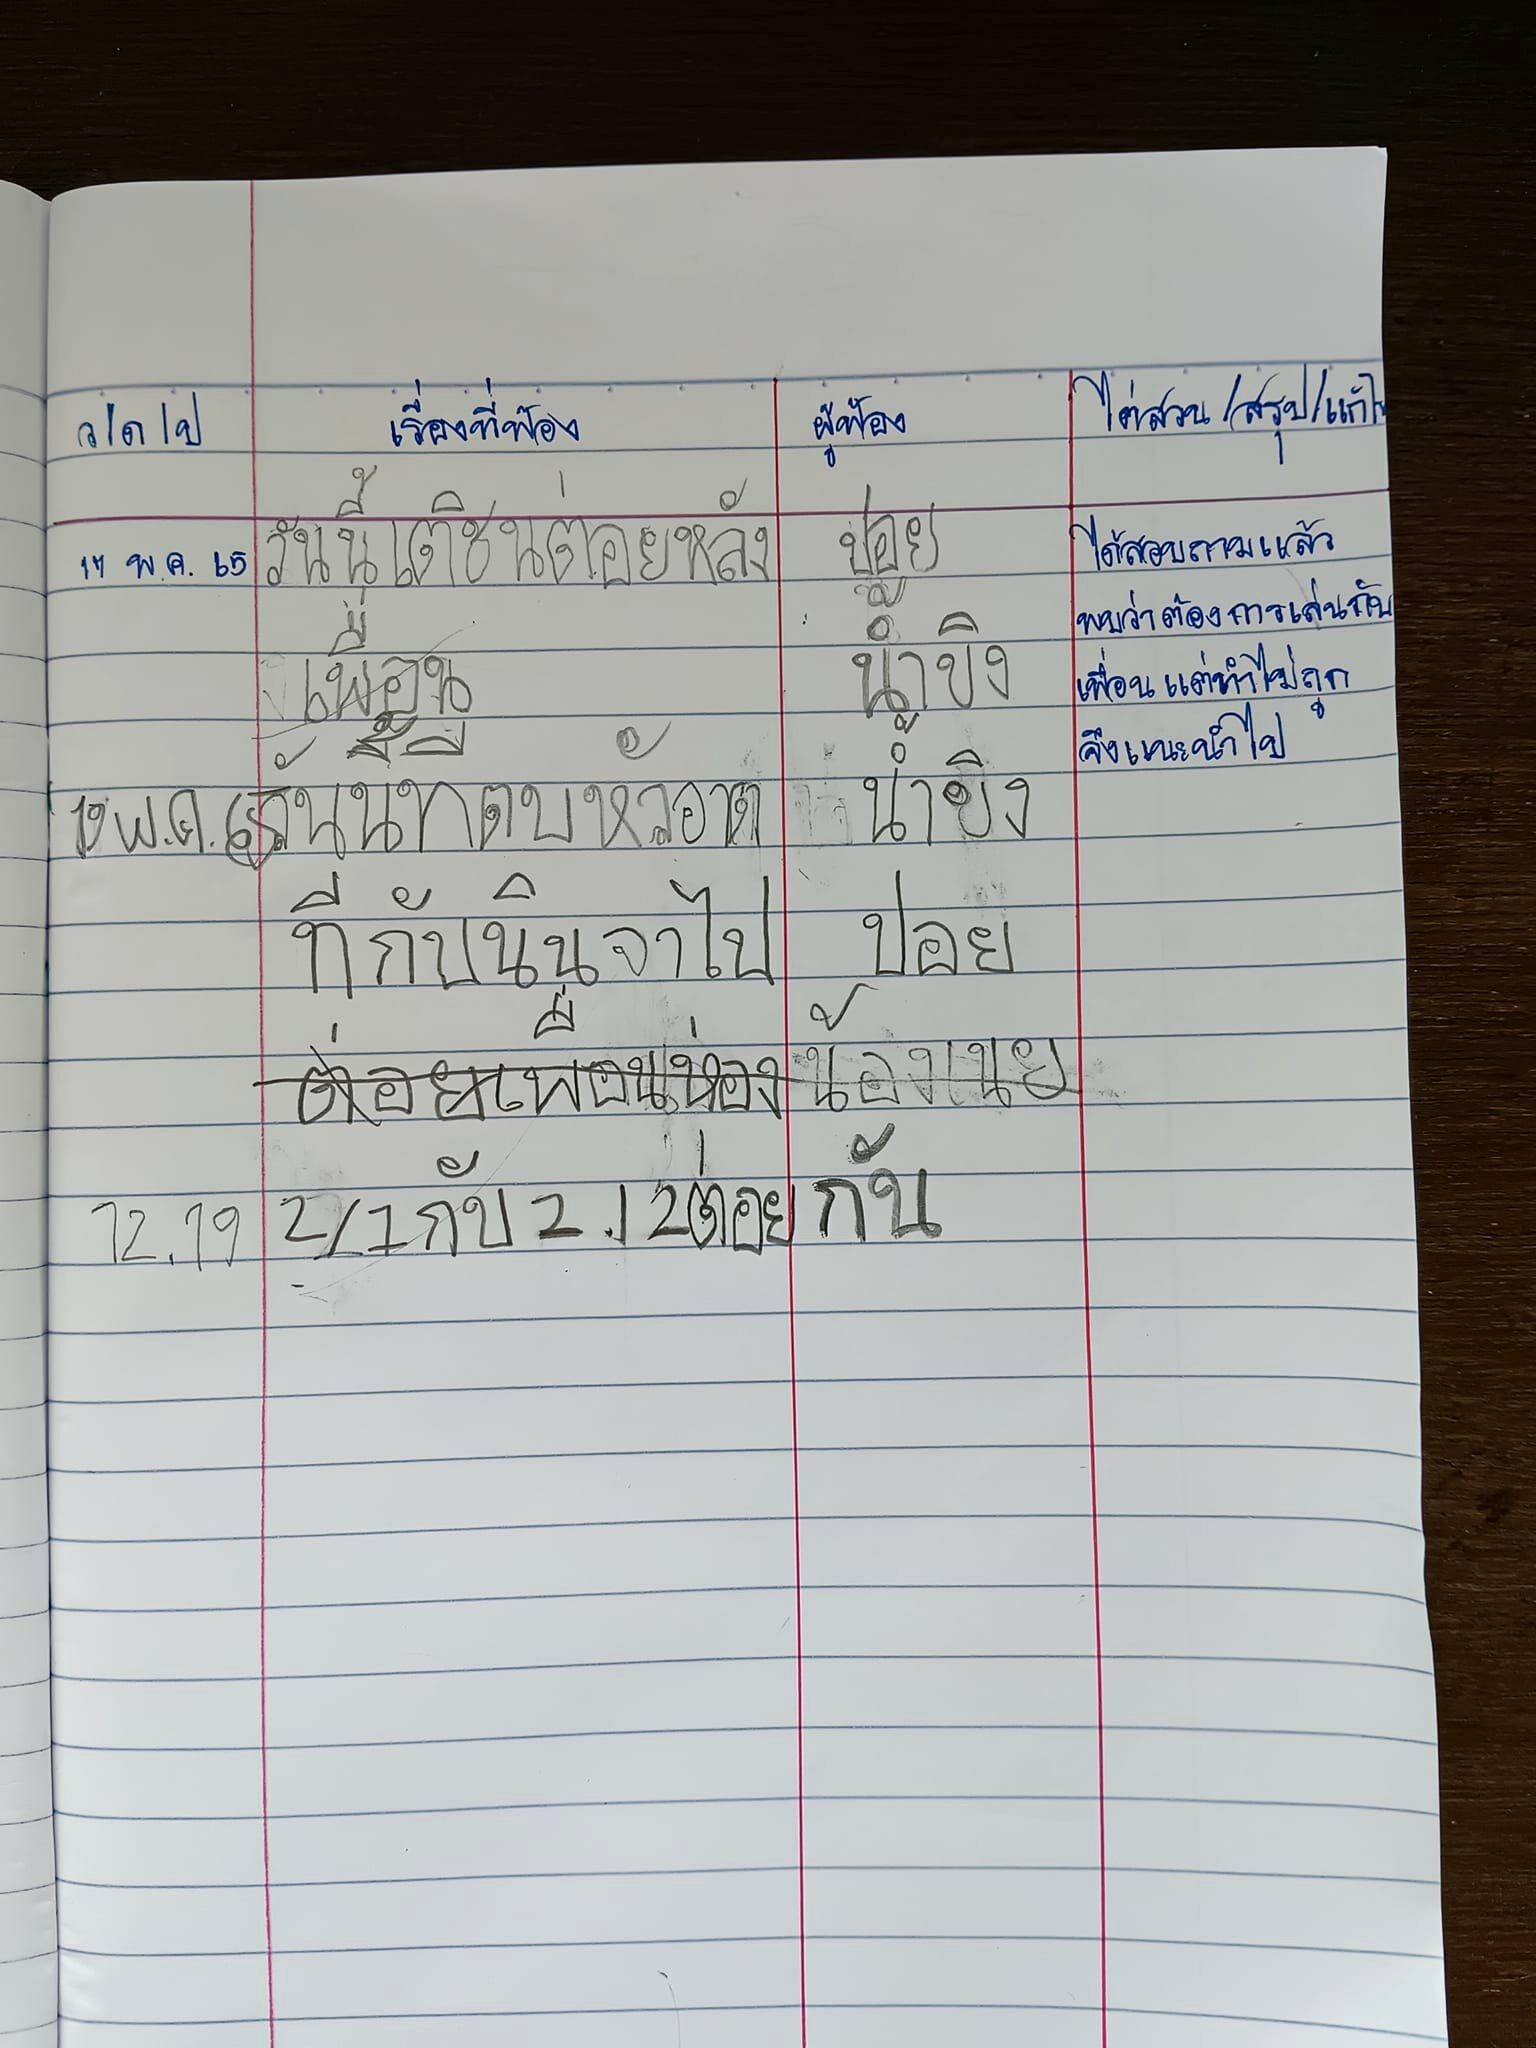 ว/ด/ป เรื่องที่ฟ้อง ผู้ฟ้อง ไต่สวน/สรุป/แก้ไข
17 พ.ค. 65 วันนี้เตชินต่อยหลัง ปอย ได้สอบถามแล้ว
พบว่าต้องการเล่นกับ
เพื่อน น้ำขิง เพื่อน แต่ทำไม่ถูก
จึงแนะนำไป
19 พ.ค. 65 วันนี้ น้ำขิง
ที่กับนินจาไป ปอย
ต่อยเพื่อนห่อง น้องเนย
12.19 2/1กับ 2.12ต่อย กัน